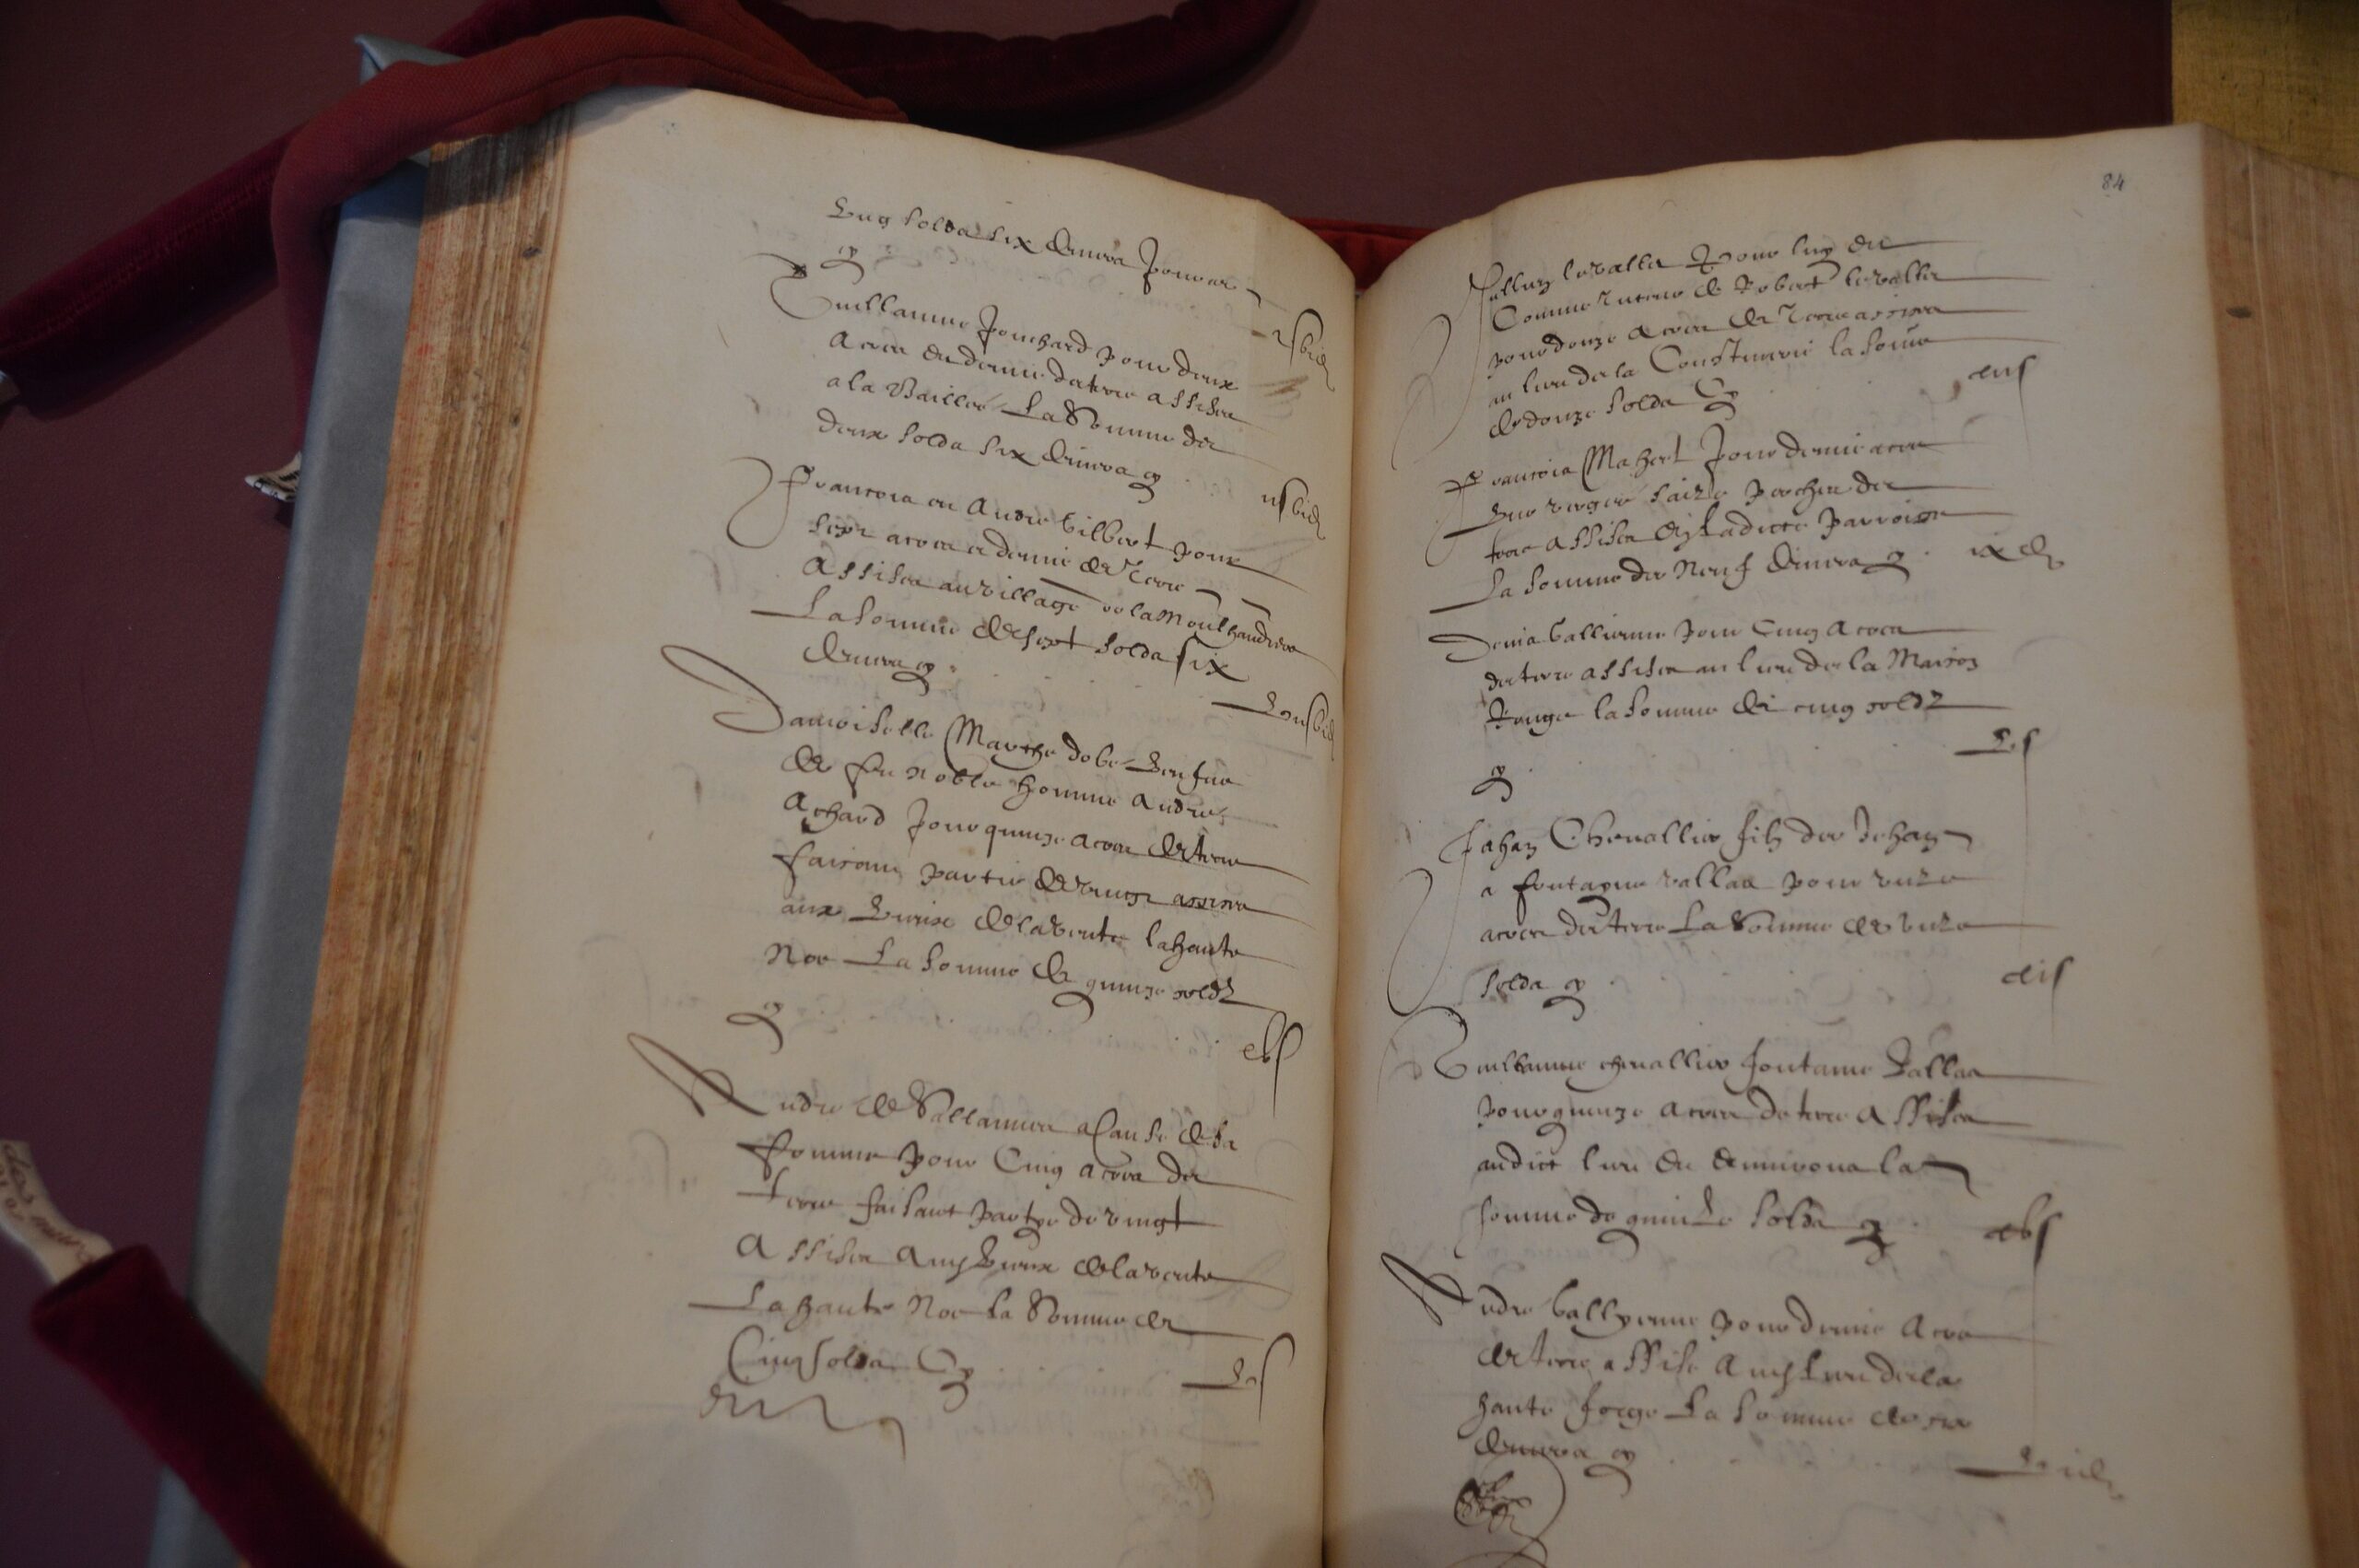 Ung solds six deniers pour ce
cy
Guillaume Pouchard pour deux
acres et demie de terre assises
a la Baillee La Somme de
deux solds six deniers cy
iis vi d
Francois ou Andre Gilbert pour
sept acres et demie de Terre
Assises au village de la
La Somme de sept solds six
deniers cy
vii s vi d
Damoiselle Marthe veufve
de feu noble homme Andre
Achard pour quinze acres de terre
faisans partie de vingt assises
aux de la vente la haute
Noe La Somme de quinze soldz
cy
xv s
Andre de Sallaunes a Cause de sa
femme pour Cinq acres de
terre faisant partye de vingt
Assises aux de la vente
La haute Noe La Somme de
Cinq solds Cy
v s
84
Jullien le vallet pour luy et
Comme de Robert le vallet
pour douze acres de Terre assises
au lieu de la la somme
de douze solds Cy
xii s
Francois Mahert pour demie acre
une vergee saize perches de
terre assises en ladicte parroisse
La Somme de Neuf deniers cy
ix d
Denis Gallienne pour Cinq Acres
de terre assises au lieu de la Maison
Rouge la Somme de cinq soldz
v s
cy
Jehan Chevallier filz de Jehan
a fontayne vallas pour unze
acres de terre La Somme de unze
solds cy
xi s
Guillaume chevallier fontaine Vallas
pour quinze acres de terre Assises
audict lieu et environs la
somme de quinze solds cy
xv s
Andre Gallyenne pour demie Acre
de terre assise Au lieu de la
haute forge La Somme de six
deniers cy
vi d